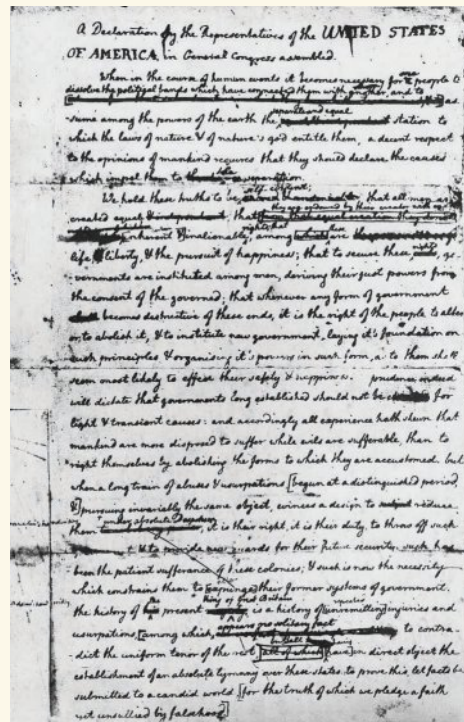 A Declaration by the Representatives of the UNITED STATES
OF AMERICA, in General Congress assembled.
When in the course of human events it becomes necessary for one people to
dissolve the political bands which have connected them with another, and to as-
sume among the powers of the earth the separate and equal station to
which the laws of nature & of nature's god entitle them, a decent respect
to the opinions of mankind requires that they should declare the causes
which impel them to the separation.
We hold these truths to be self-evident; that all men are
created equal that they are endowed by their creator with
inherent & inalienable rights; that among these are
life, liberty, & the pursuit of happiness; that to secure these rights, go-
vernments are instituted among men, deriving their just powers from
the consent of the governed; that whenever any form of government
becomes destructive of these ends, it is the right of the people to alter
or to abolish it, & to institute new government, laying it's foundation on
such principles & organising it's powers in such form, as to them shall
seem most likely to effect their safety & happiness. prudence indeed
will dictate that governments long established should not be for
light & transient causes: and accordingly all experience hath shewn that
mankind are more disposed to suffer while evils are sufferable, than to
right themselves by abolishing the forms to which they are accustomed. but
when a long train of abuses & usurpations [begun at a distinguished period,
&] pursuing invariably the same object, evinces a design to reduce
them under absolute Despotism, it is their right, it is their duty, to throw off such
& to provide new guards for their future security. such has
been the patient sufferance of these colonies; & such is now the necessity
which constrains them to [expunge] their former systems of government.
the history of the present King of Great Britain is a history of [unremitting] injuries and
usurpations, [among which, appears no solitary fact to contra-
dict the uniform tenor of the rest [all of which] [have] in direct object the
establishment of an absolute tyranny over these states. to prove this, let facts be
submitted to a candid world [for the truth of which we pledge a faith
yet unsullied by falsehood]